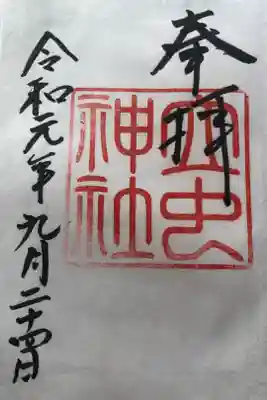 奉拝
霊虫
神社
令和元年九月二十四日